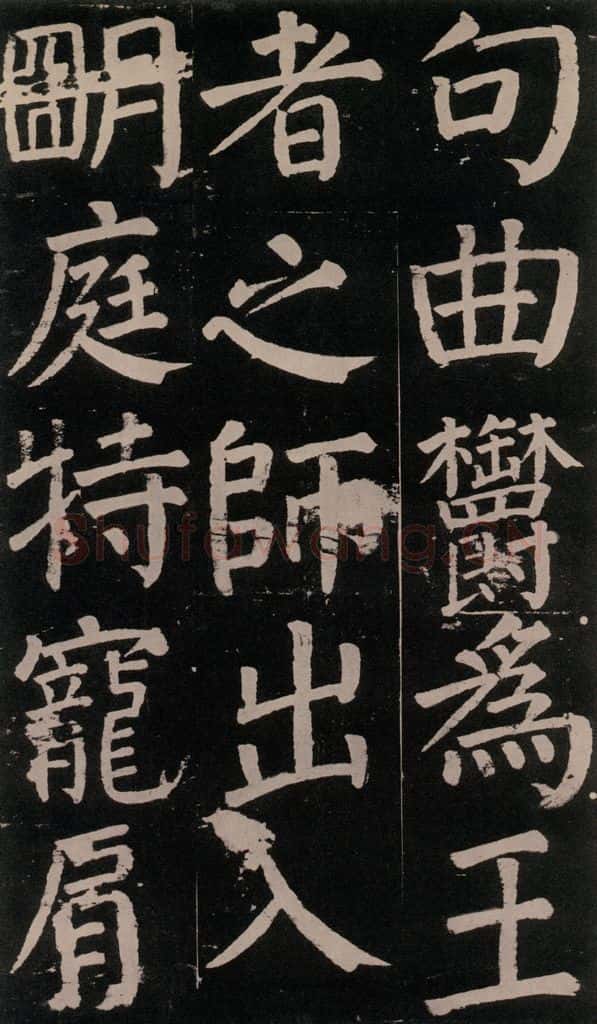 句曲欎為王
者之師出入
朙庭特寵肩
Shufawang.CN